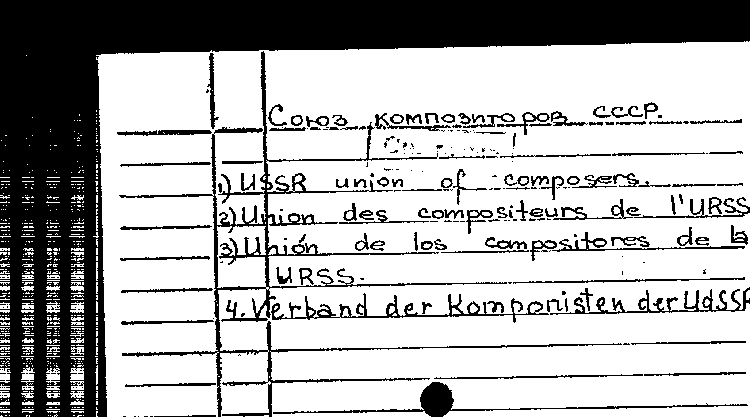 Союз композиторов СССР.
1) USSR union of composers.
2) Union des compositeurs de l'URSS
3) Unión de los compositores de la
URSS.
4. Verband der Komponisten der UdSSR